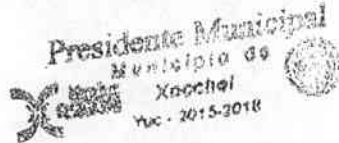 Presidente Municipal
Municipio de
Xocchel
Yuc - 2015-2018